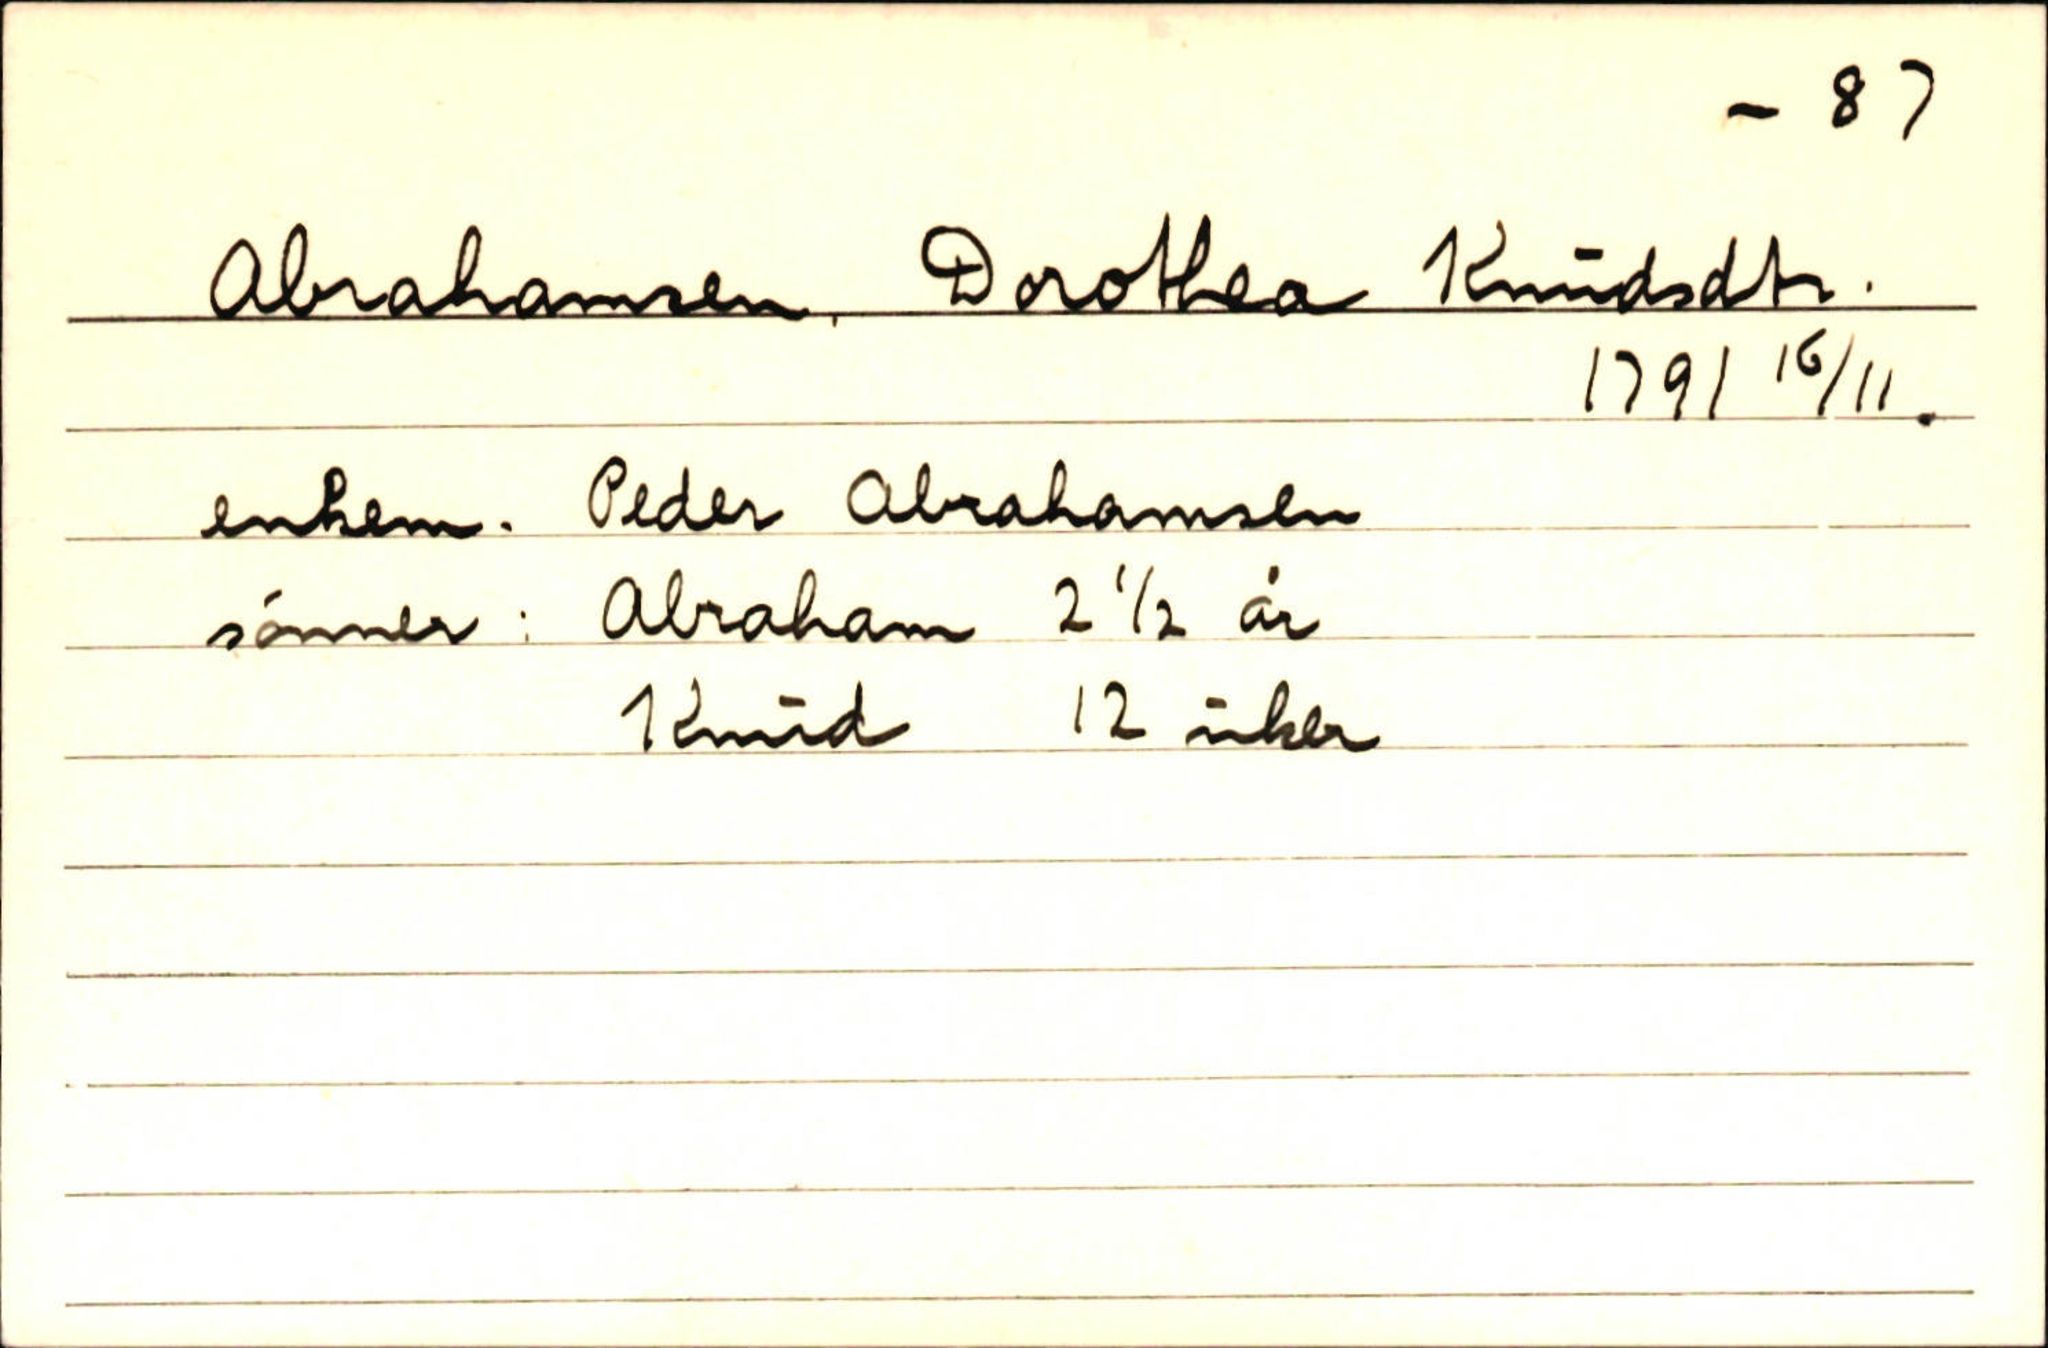 - 87
Abrahamsen, Dorothea Knudsdtr.
1791 16/11.
enkem. Peder Abrahamsen
sønner: Abraham 2 1/2 år
Knud 12 uker